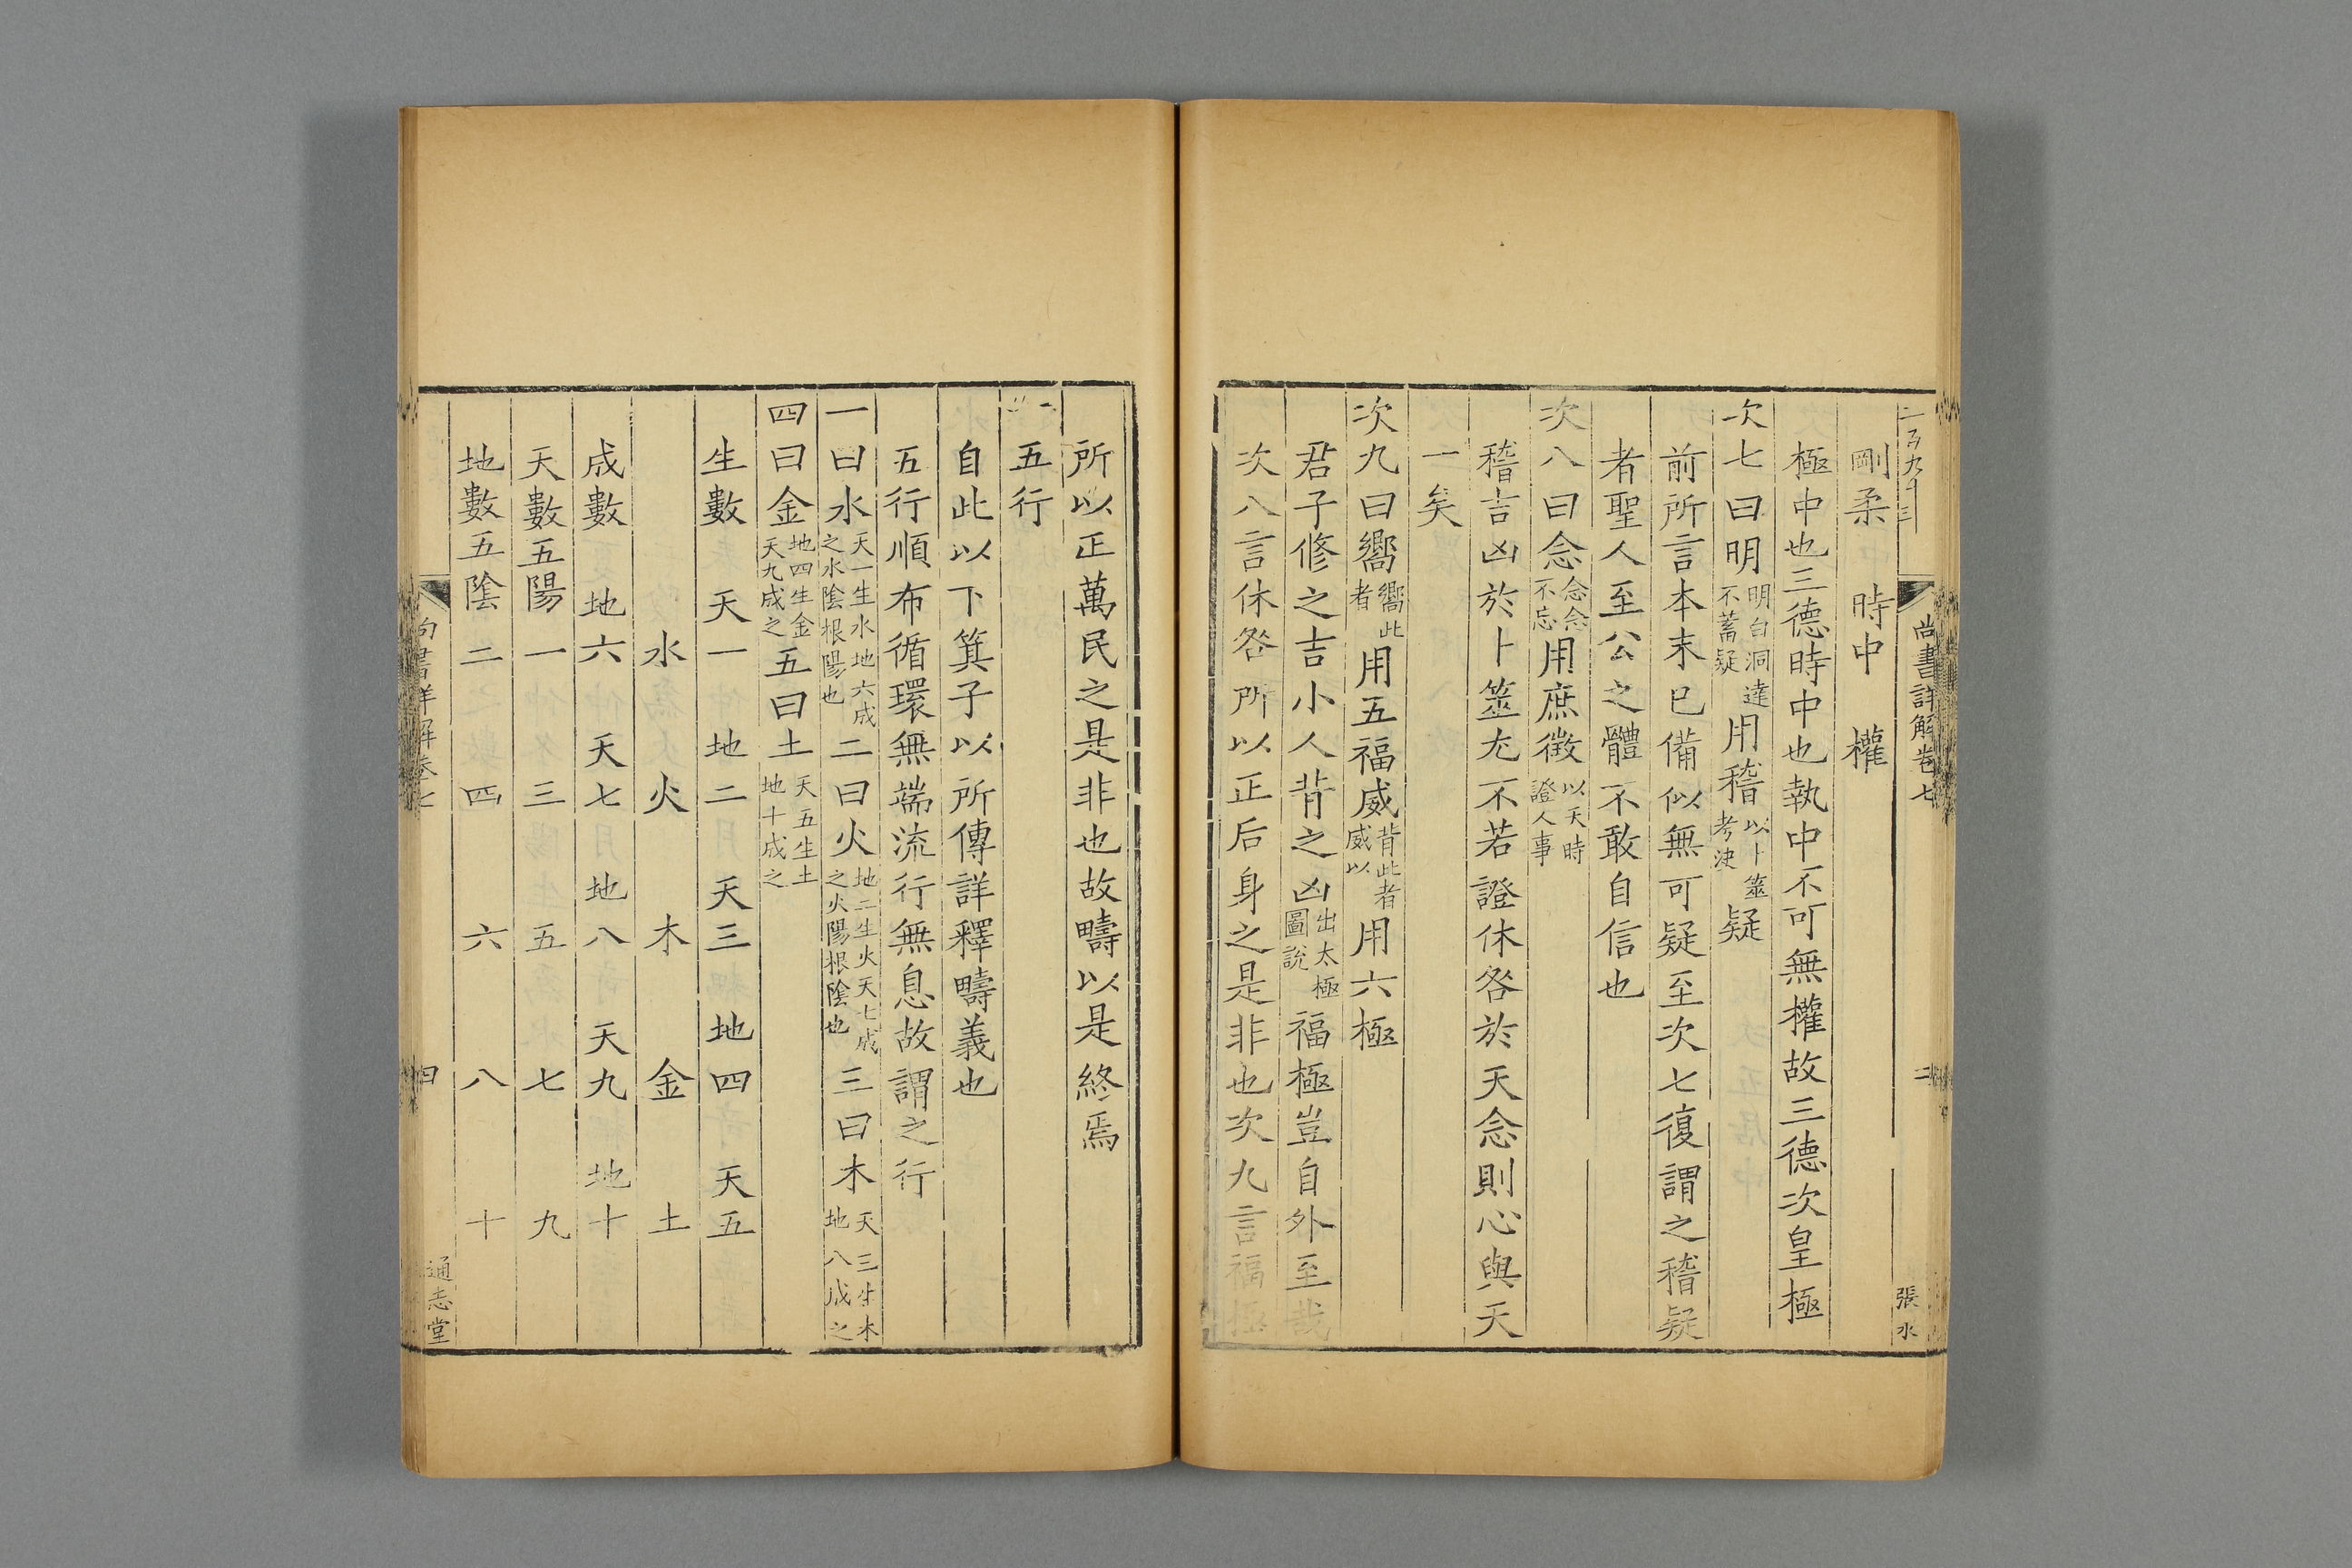 尚書詳解卷七
張水
剛柔 時中 權
極中也三德時中也執中不可無權故三德次皇極
次七曰明明白洞達不蓄疑用稽以卜筮考决疑
前所言本末已備似無可疑至次七復謂之稽疑
者聖人至公之體不敢自信也
次八曰念念念不忘用庶徵以天時證人事
稽吉凶於卜筮尤不若證休咎於天念則心與天
一矣
次九曰嚮嚮此者用五福威背此者威以用六極
君子修之吉小人背之凶出太極圖說福極豈自外至哉
次八言休咎所以正后身之是非也次九言福極
所以正萬民之是非也故疇以是終焉
五行
自此以下箕子以所傳詳釋疇義也
五行順布循環無端流行無息故謂之行
一曰水天一生水地六成之水陰根陽也二曰火地二生火天七成之火陽根陰也三曰木天三生木地八成之
四曰金地四生金天九成之五曰土天五生土地十成之
生數 天一 地二 天三 地四 天五
水 火 木 金 土
成數 地六 天七 地八 天九 地十
天數五陽 一 三 五 七 九
地數五陰 二 四 六 八 十
尚書詳解卷七
四
通志堂